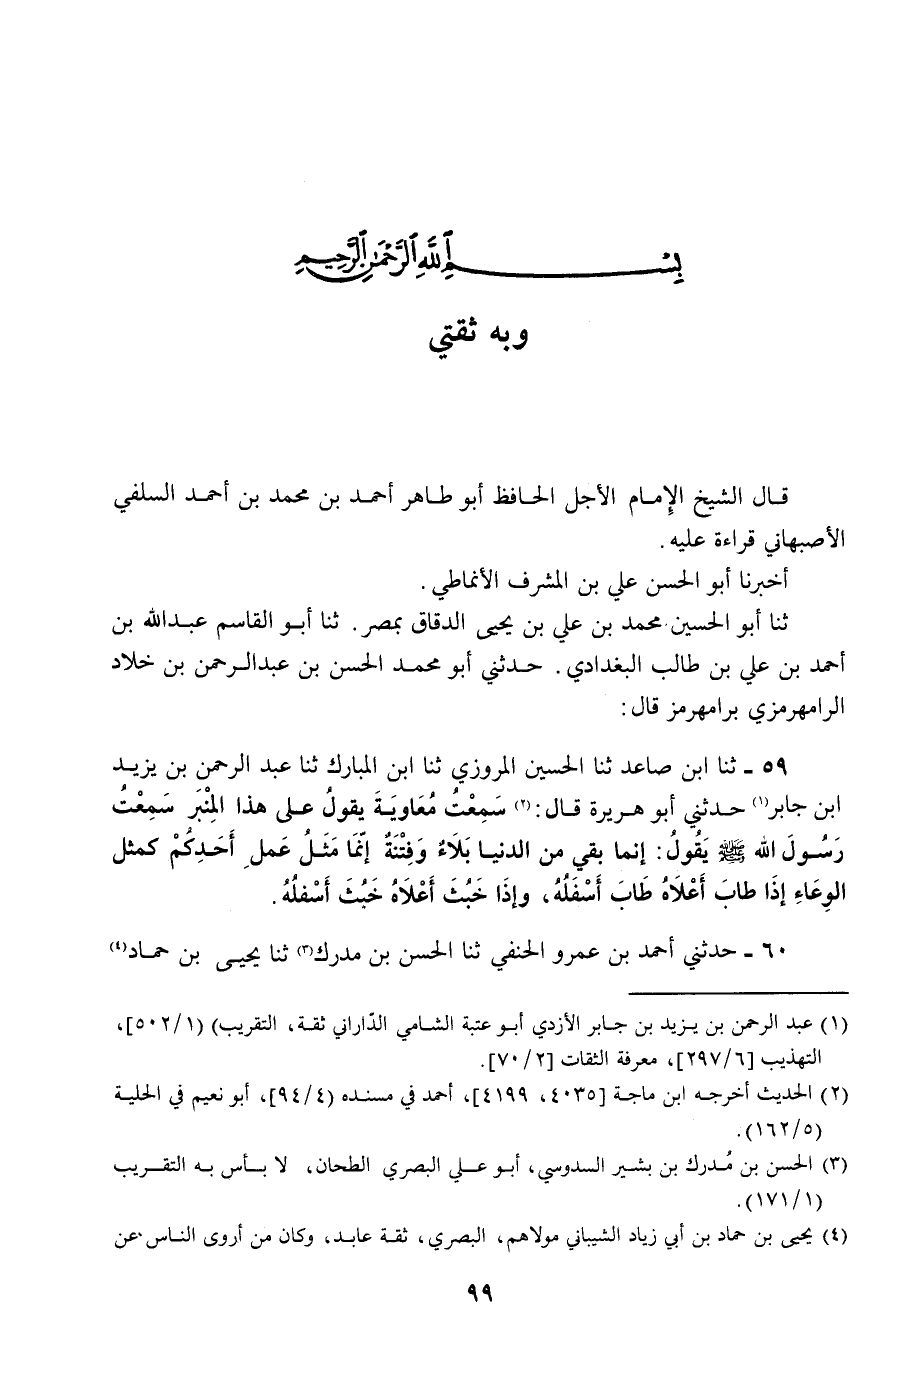 بِسْمِ ٱللَّهِ ٱلرَّحْمَٰنِ ٱلرَّحِيمِ
وبه ثقتي
قال الشيخ الإِمام الأجل الحافظ أبو طاهر أحمد بن محمد بن أحمد السلفي
الأصبهاني قراءة عليه .
أخبرنا أبو الحسن علي بن المشرف الأنماطي .
ثنا أبو الحسين محمد بن علي بن يحيى الدقاق بمصر . ثنا أبو القاسم عبدالله بن
أحمد بن علي بن طالب البغدادي . حدثني أبو محمد الحسن بن عبدالرحمن بن خلاد
الرامهرمزي برامهرمز قال :
٥٩ ـ ثنا ابن صاعد ثنا الحسين المروزي ثنا ابن المبارك ثنا عبد الرحمن بن يزيد
ابن جابر(١) حدثني أبو هريرة قال :(٢) سَمِعْتُ مُعَاوِيَةَ يقولُ على هذا المِنْبَرِ سَمِعْتُ
رَسُولَ الله ﷺ يَقُولُ : إنما بقي من الدنيا بَلَاءٌ وَفِتْنَةٌ إنَّمَا مَثَلُ عَملِ أَحَدِكُمْ كمثل
الوِعَاءِ إذَا طابَ أَعْلَاهُ طَابَ أَسْفَلُهُ ، وإذَا خَبُثَ أَعْلَاهُ خَبُثَ أَسْفلُهُ .
٦٠ ـ حدثني أحمد بن عمرو الحنفي ثنا الحسن بن مدرك(٣) ثنا يحيى بن حماد(٤)
(١) عبد الرحمن بن يزيد بن جابر الأزدي أبو عتبة الشامي الدّاراني ثقة ، التقريب) (٥٠٢/١] ،
التهذيب [٢٩٧/٦] ، معرفة الثقات [٧٠/٢] .
(٢) الحديث أخرجه ابن ماجة [٤٠٣٥ ، ٤١٩٩] ، أحمد في مسنده (٩٤/٤] ، أبو نعيم في الحلية
(١٦٢/٥) .
(٣) الحسن بن مُدرك بن بشير السدوسي ، أبو علي البصري الطحان ، لا بأس به التقريب
(١٧١/١) .
(٤) يحيى بن حماد بن أبي زياد الشيباني مولاهم ، البصري ، ثقة عابد ، وكان من أروى الناس عن
٩٩